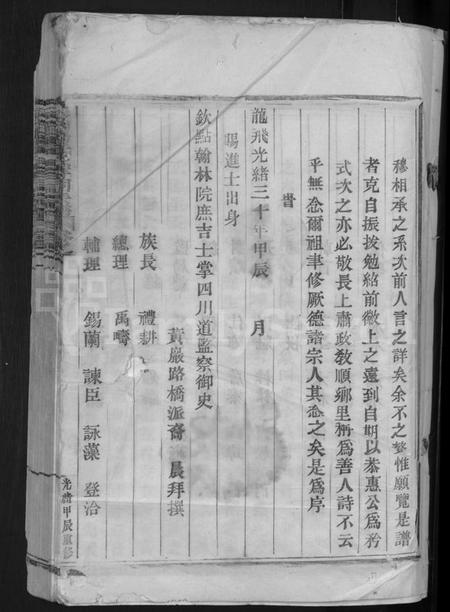 穆相承之系次前人言之詳矣余不之贅惟願覽是譜
者克自振拔勉紹前徽上之遠到自期以恭惠公為矜
式次之亦必敬長上肅政敎順鄉里稱為善人詩不云
乎無念爾祖聿修厥德諸宗人其念之矣是為序
旹
龍飛光緒三十年甲辰 月
賜進士出身
欽點翰林院庶吉士掌四川道監察御史
黃巖路橋派裔 晨拜撰
族長 禮耕
總理 禹疇
輔理 錫蘭 諫臣 詠藻 登治
光緒甲辰重修